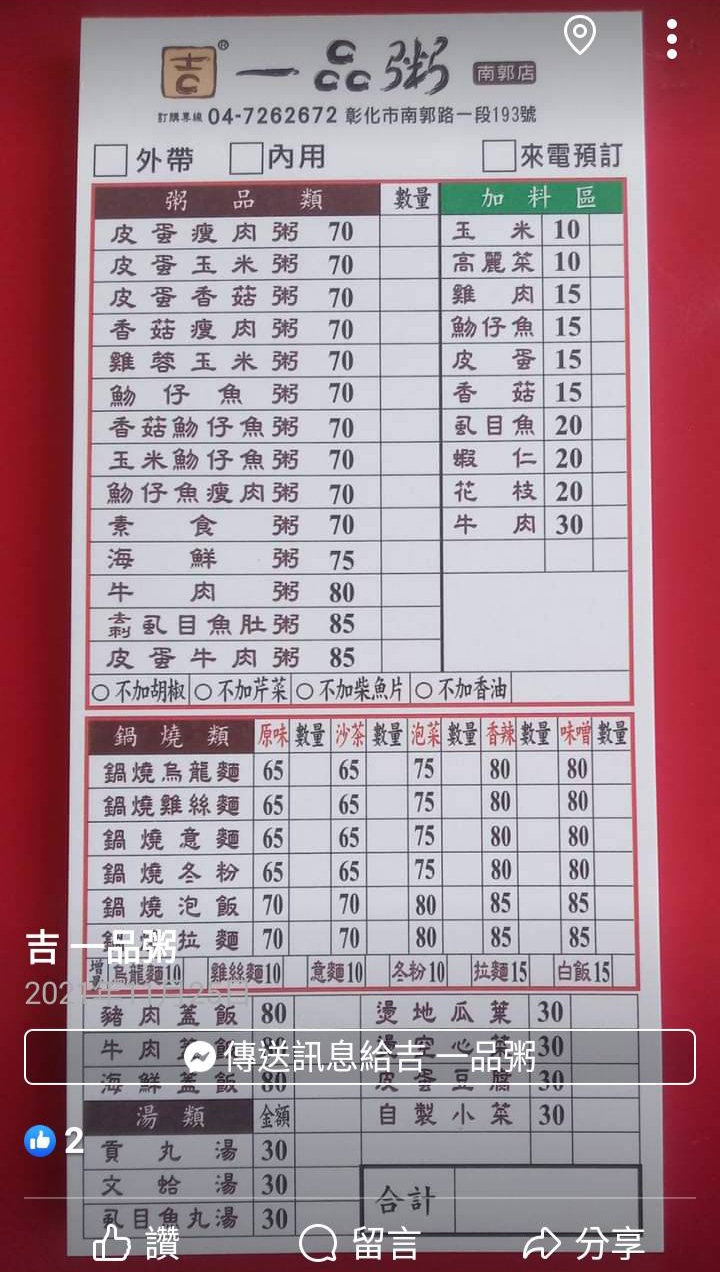 吉 一品粥 ® 南郭店
訂購專線 04-7262672 彰化市南郭路一段193號
外帶 內用 來電預訂
粥品類 數量 加料區
皮蛋瘦肉粥 70 玉米 10
皮蛋玉米粥 70 高麗菜 10
皮蛋香菇粥 70 雞肉 15
香菇瘦肉粥 70 魩仔魚 15
雞蓉玉米粥 70 皮蛋 15
魩仔魚粥 70 香菇 15
香菇魩仔魚粥 70 虱目魚 20
玉米魩仔魚粥 70 蝦仁 20
魩仔魚瘦肉粥 70 花枝 20
素食粥 70 牛肉 30
海鮮粥 75
牛肉粥 80
去刺虱目魚肚粥 85
皮蛋牛肉粥 85
不加胡椒 不加芹菜 不加柴魚片 不加香油
鍋燒類 原味 數量 沙茶 數量 泡菜 數量 香辣 數量 味噌 數量
鍋燒烏龍麵 65 65 75 80 80
鍋燒雞絲麵 65 65 75 80 80
鍋燒意麵 65 65 75 80 80
鍋燒冬粉 65 65 75 80 80
鍋燒泡飯 70 70 80 85 85
鍋燒拉麵 70 70 80 85 85
吉 一品粥
增量 烏龍麵10 雞絲麵10 意麵10 冬粉10 拉麵15 白飯15
2021年11月25日
豬肉蓋飯 80 燙地瓜葉 30
牛肉蓋飯 80 燙空心菜 30
傳送訊息給吉 一品粥
海鮮蓋飯 80 皮蛋豆腐 30
湯類 金額 自製小菜 30
2
貢丸湯 30
文蛤湯 30 合計
虱目魚丸湯 30
讚 留言 分享